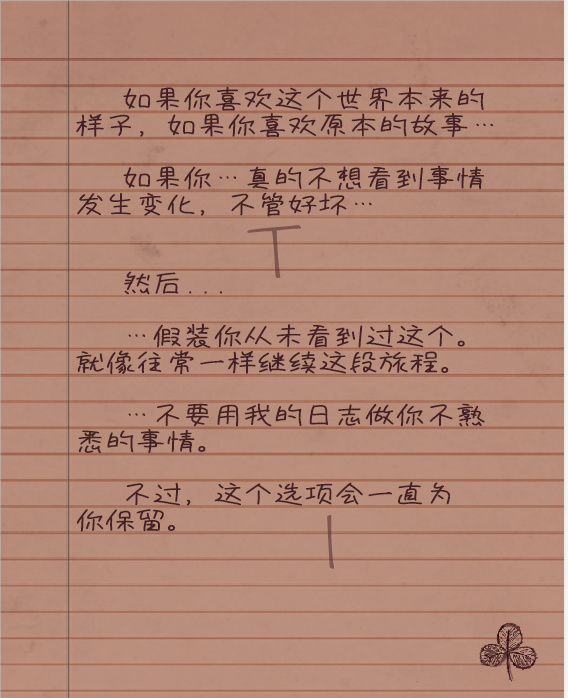 如果你喜欢这个世界本来的
样子，如果你喜欢原本的故事…
如果你…真的不想看到事情
发生变化，不管好坏…
T
然后...
…假装你从未看到过这个。
就像往常一样继续这段旅程。
…不要用我的日志做你不熟
悉的事情。
不过，这个选项会一直为
你保留。
|